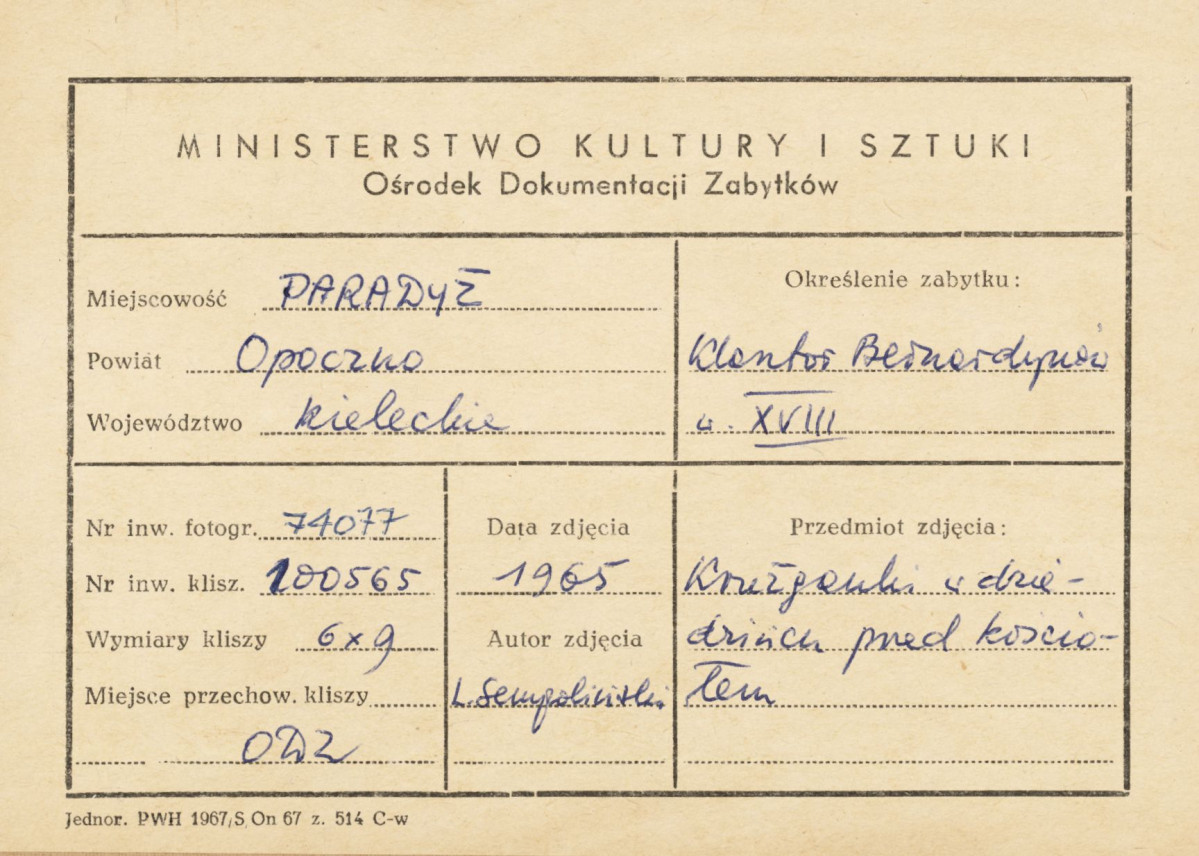 MINISTERSTWO KULTURY I SZTUKI
Ośrodek Dokumentacji Zabytków
Miejscowość PARADYŻ
Powiat Opoczno
Województwo kieleckie
Określenie zabytku:
Klasztor Bernardynów
w. XVIII
Nr inw. fotogr. 74077
Nr inw. klisz. 100565
Wymiary kliszy 6x9
Miejsce przechow. kliszy
ODZ
Data zdjęcia
1965
Autor zdjęcia
L. Sempoliński
Przedmiot zdjęcia:
Krużganki w dzie-
dzińcu przed kościo-
łem
Jednor. PWH 1967/S On 67 z. 514 C-w